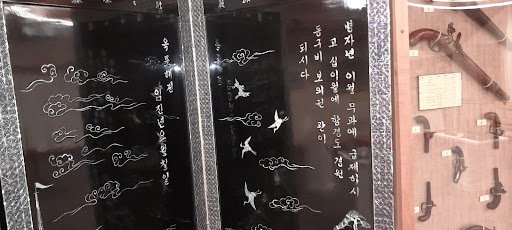 병자년 이월 무과에 급제하시
고 십이월에 함경도 경원
동구비 보의권 관이
되시다
옥포해전
임진년